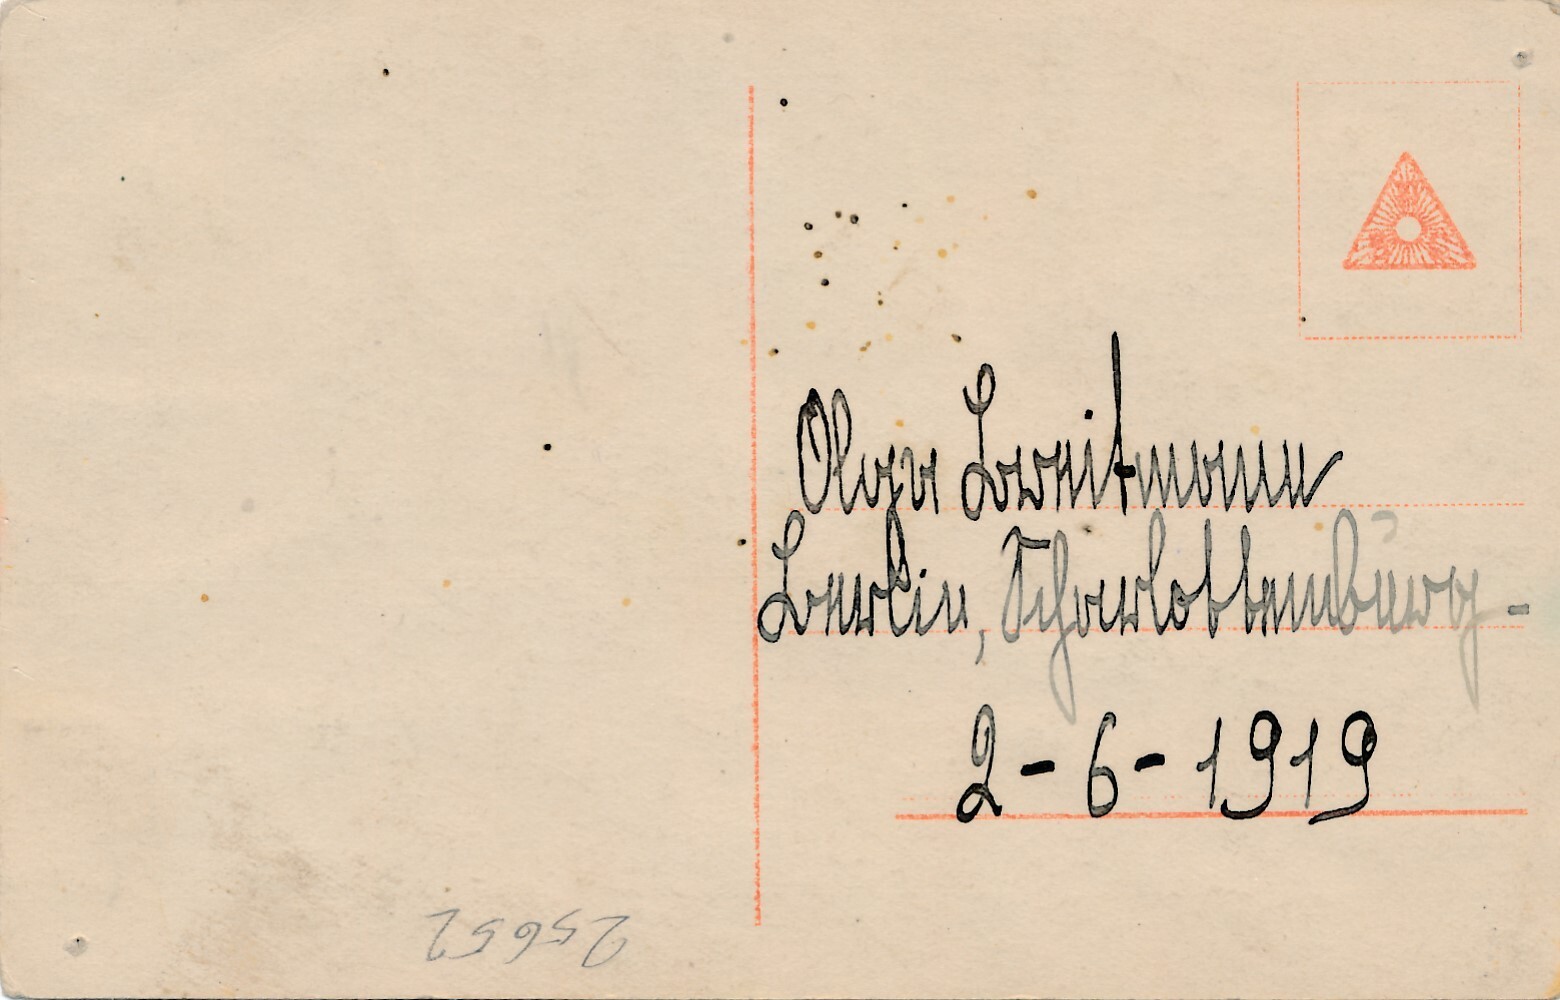 Olga Breitmann
Berlin, Charlottenburg-
2-6-1919
25652